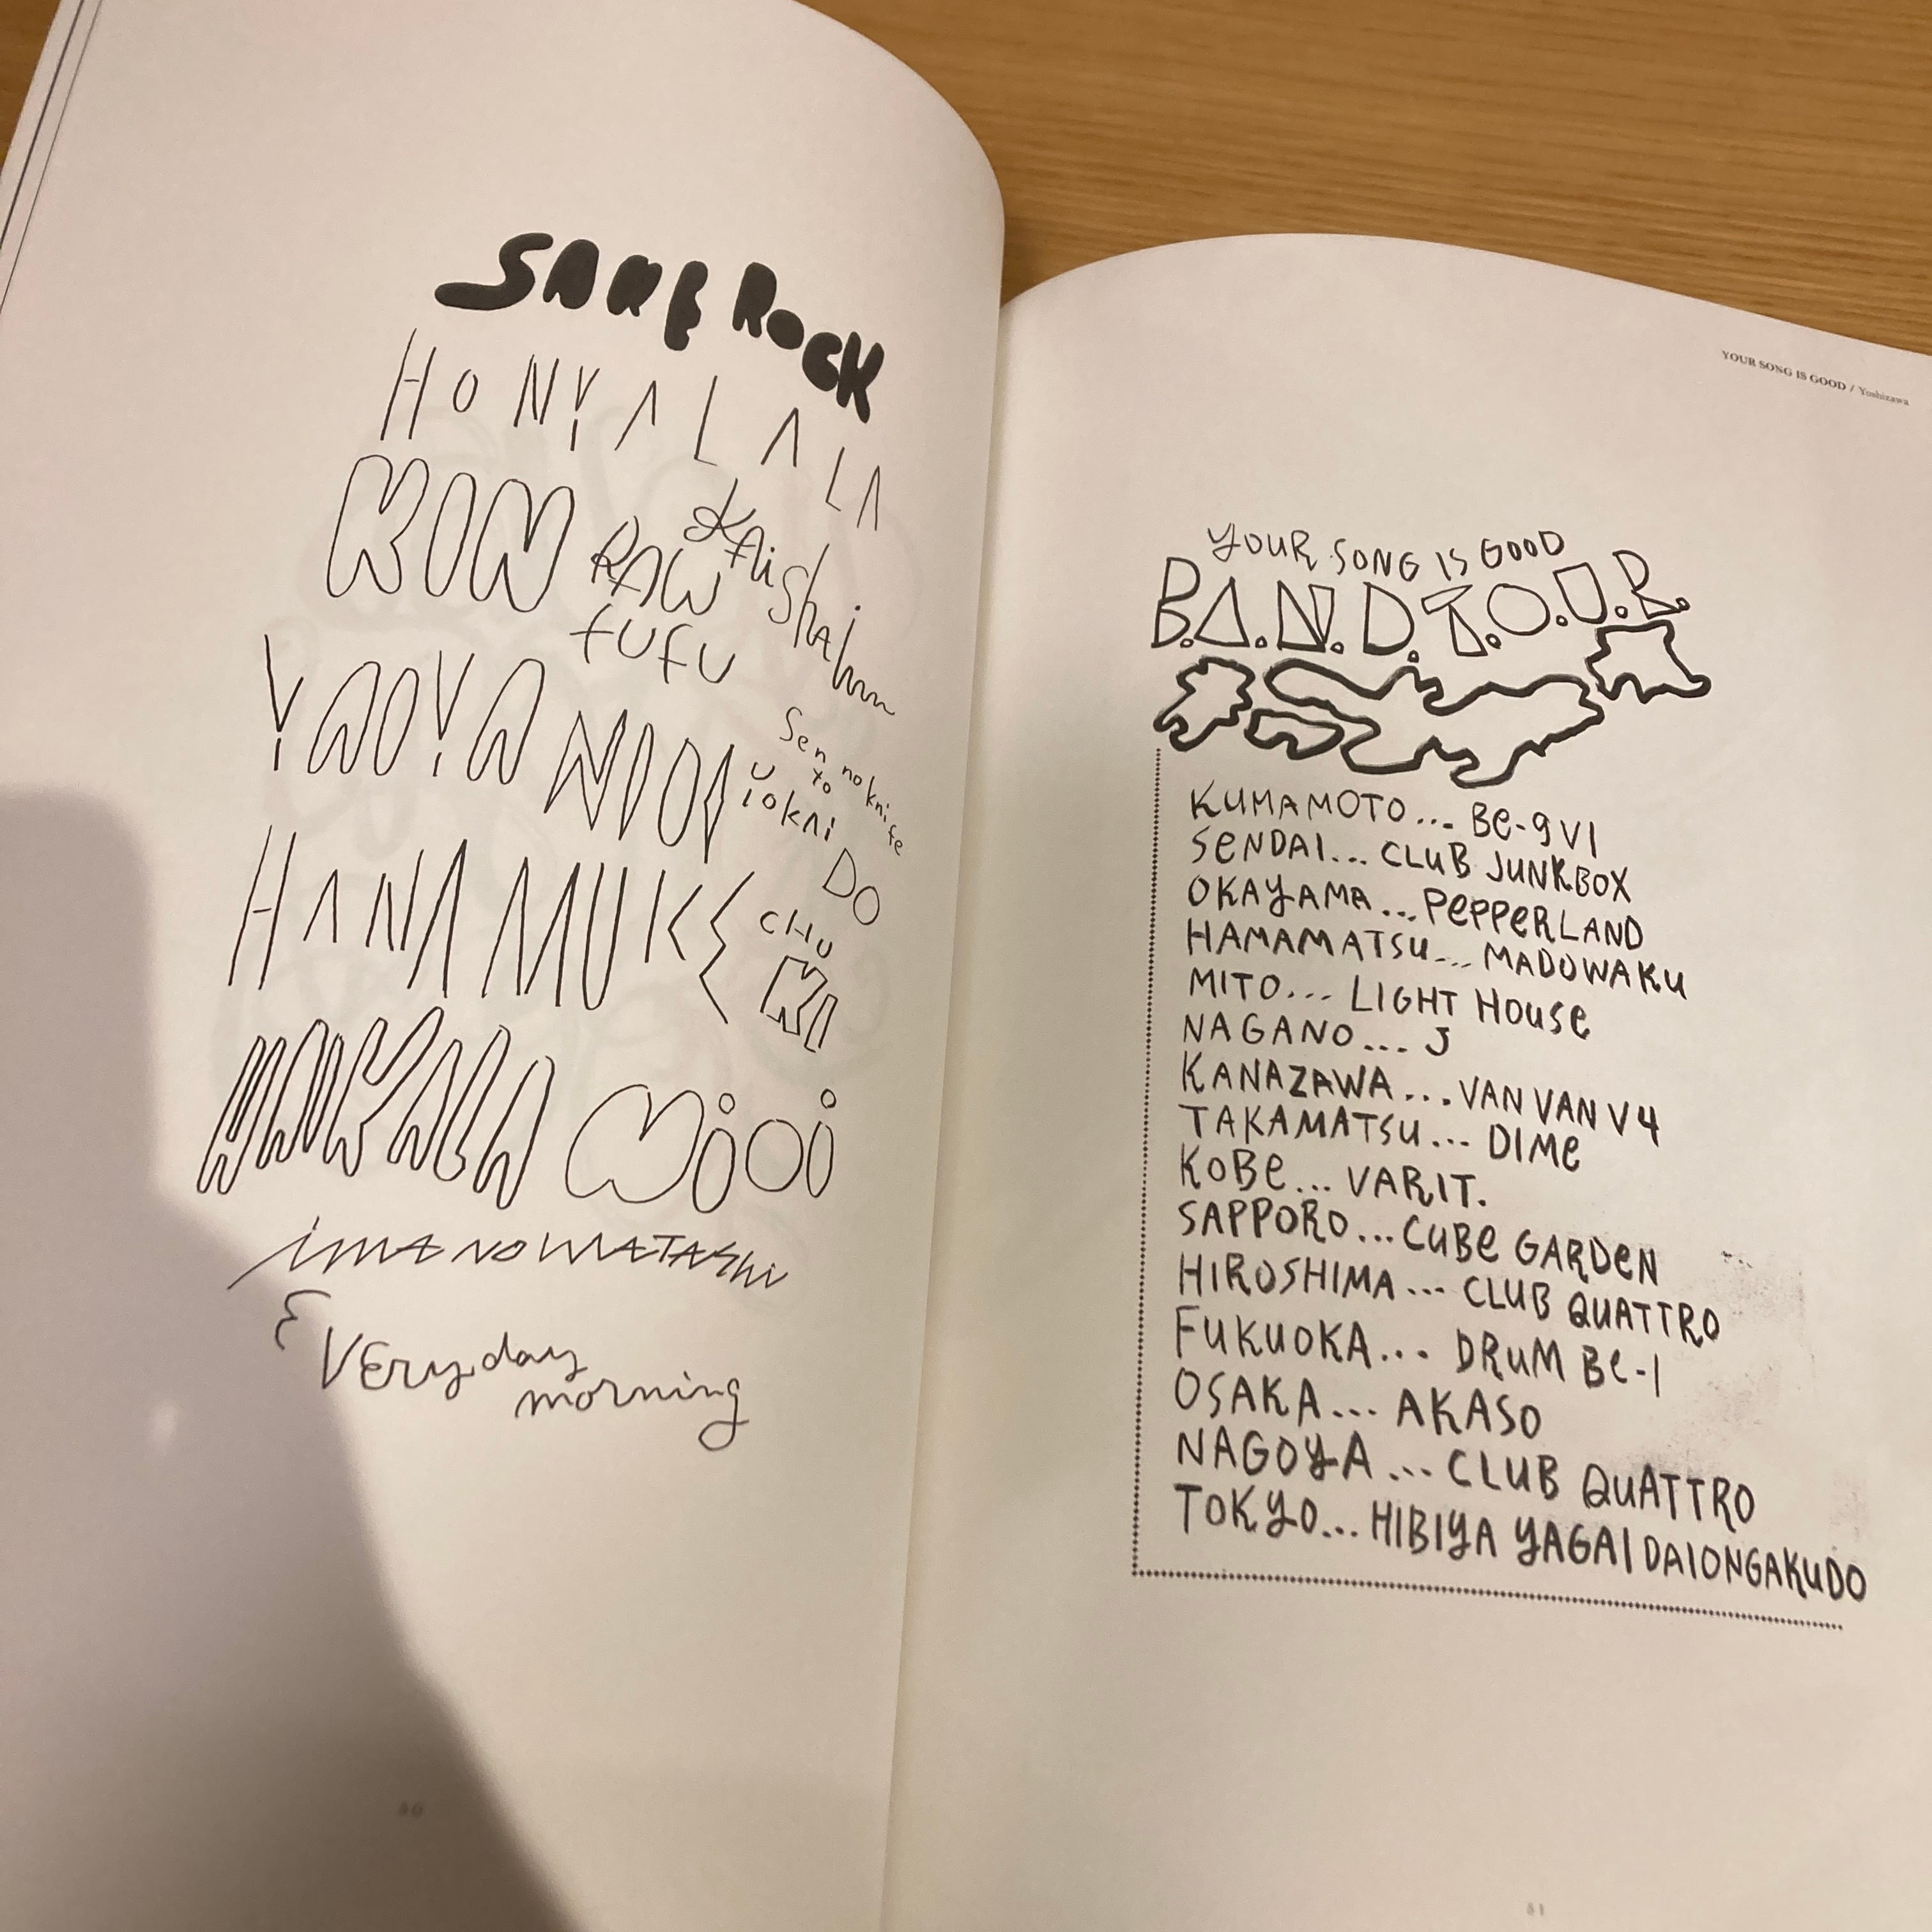 SAKEROCK
HONYALALA
KIN
RAW
FUFU
KAishain
YAOYA
NIOI
Sen no knife
to
UioKAi
DO
HANAMUKE
CHU
KA
NiOi
iMA NO WATASHi
EVEryday
morning
50
YOUR SONG IS GOOD / Yoshizawa
YOUR SONG IS GOOD
B.A.N.D.T.O.U.R.
KUMAMOTO... Be-9 V1
SeNDAI... CLUB JUNKBOX
OKAYAMA... PePPeRLAND
HAMAMATSu... MADOWAKu
MITO... LIGHT HOuSe
NAGANO... J
KANAZAWA... VAN VAN V4
TAKAMATSu... DIMe
KOBe... VARIT.
SAPPORO... CuBe GARDeN
HIROSHIMA... CLUB QuATTRO
FUKUOKA... DRuM Be-1
OSAKA... AKASO
NAGOYA... CLUB QuATTRO
TOKYO... HIBIYA YAGAI DAIONGAKuDO
51